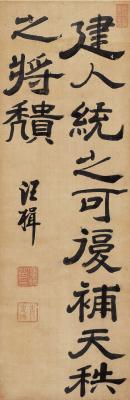 建人統之可復補天秩
之將穨
汪楫